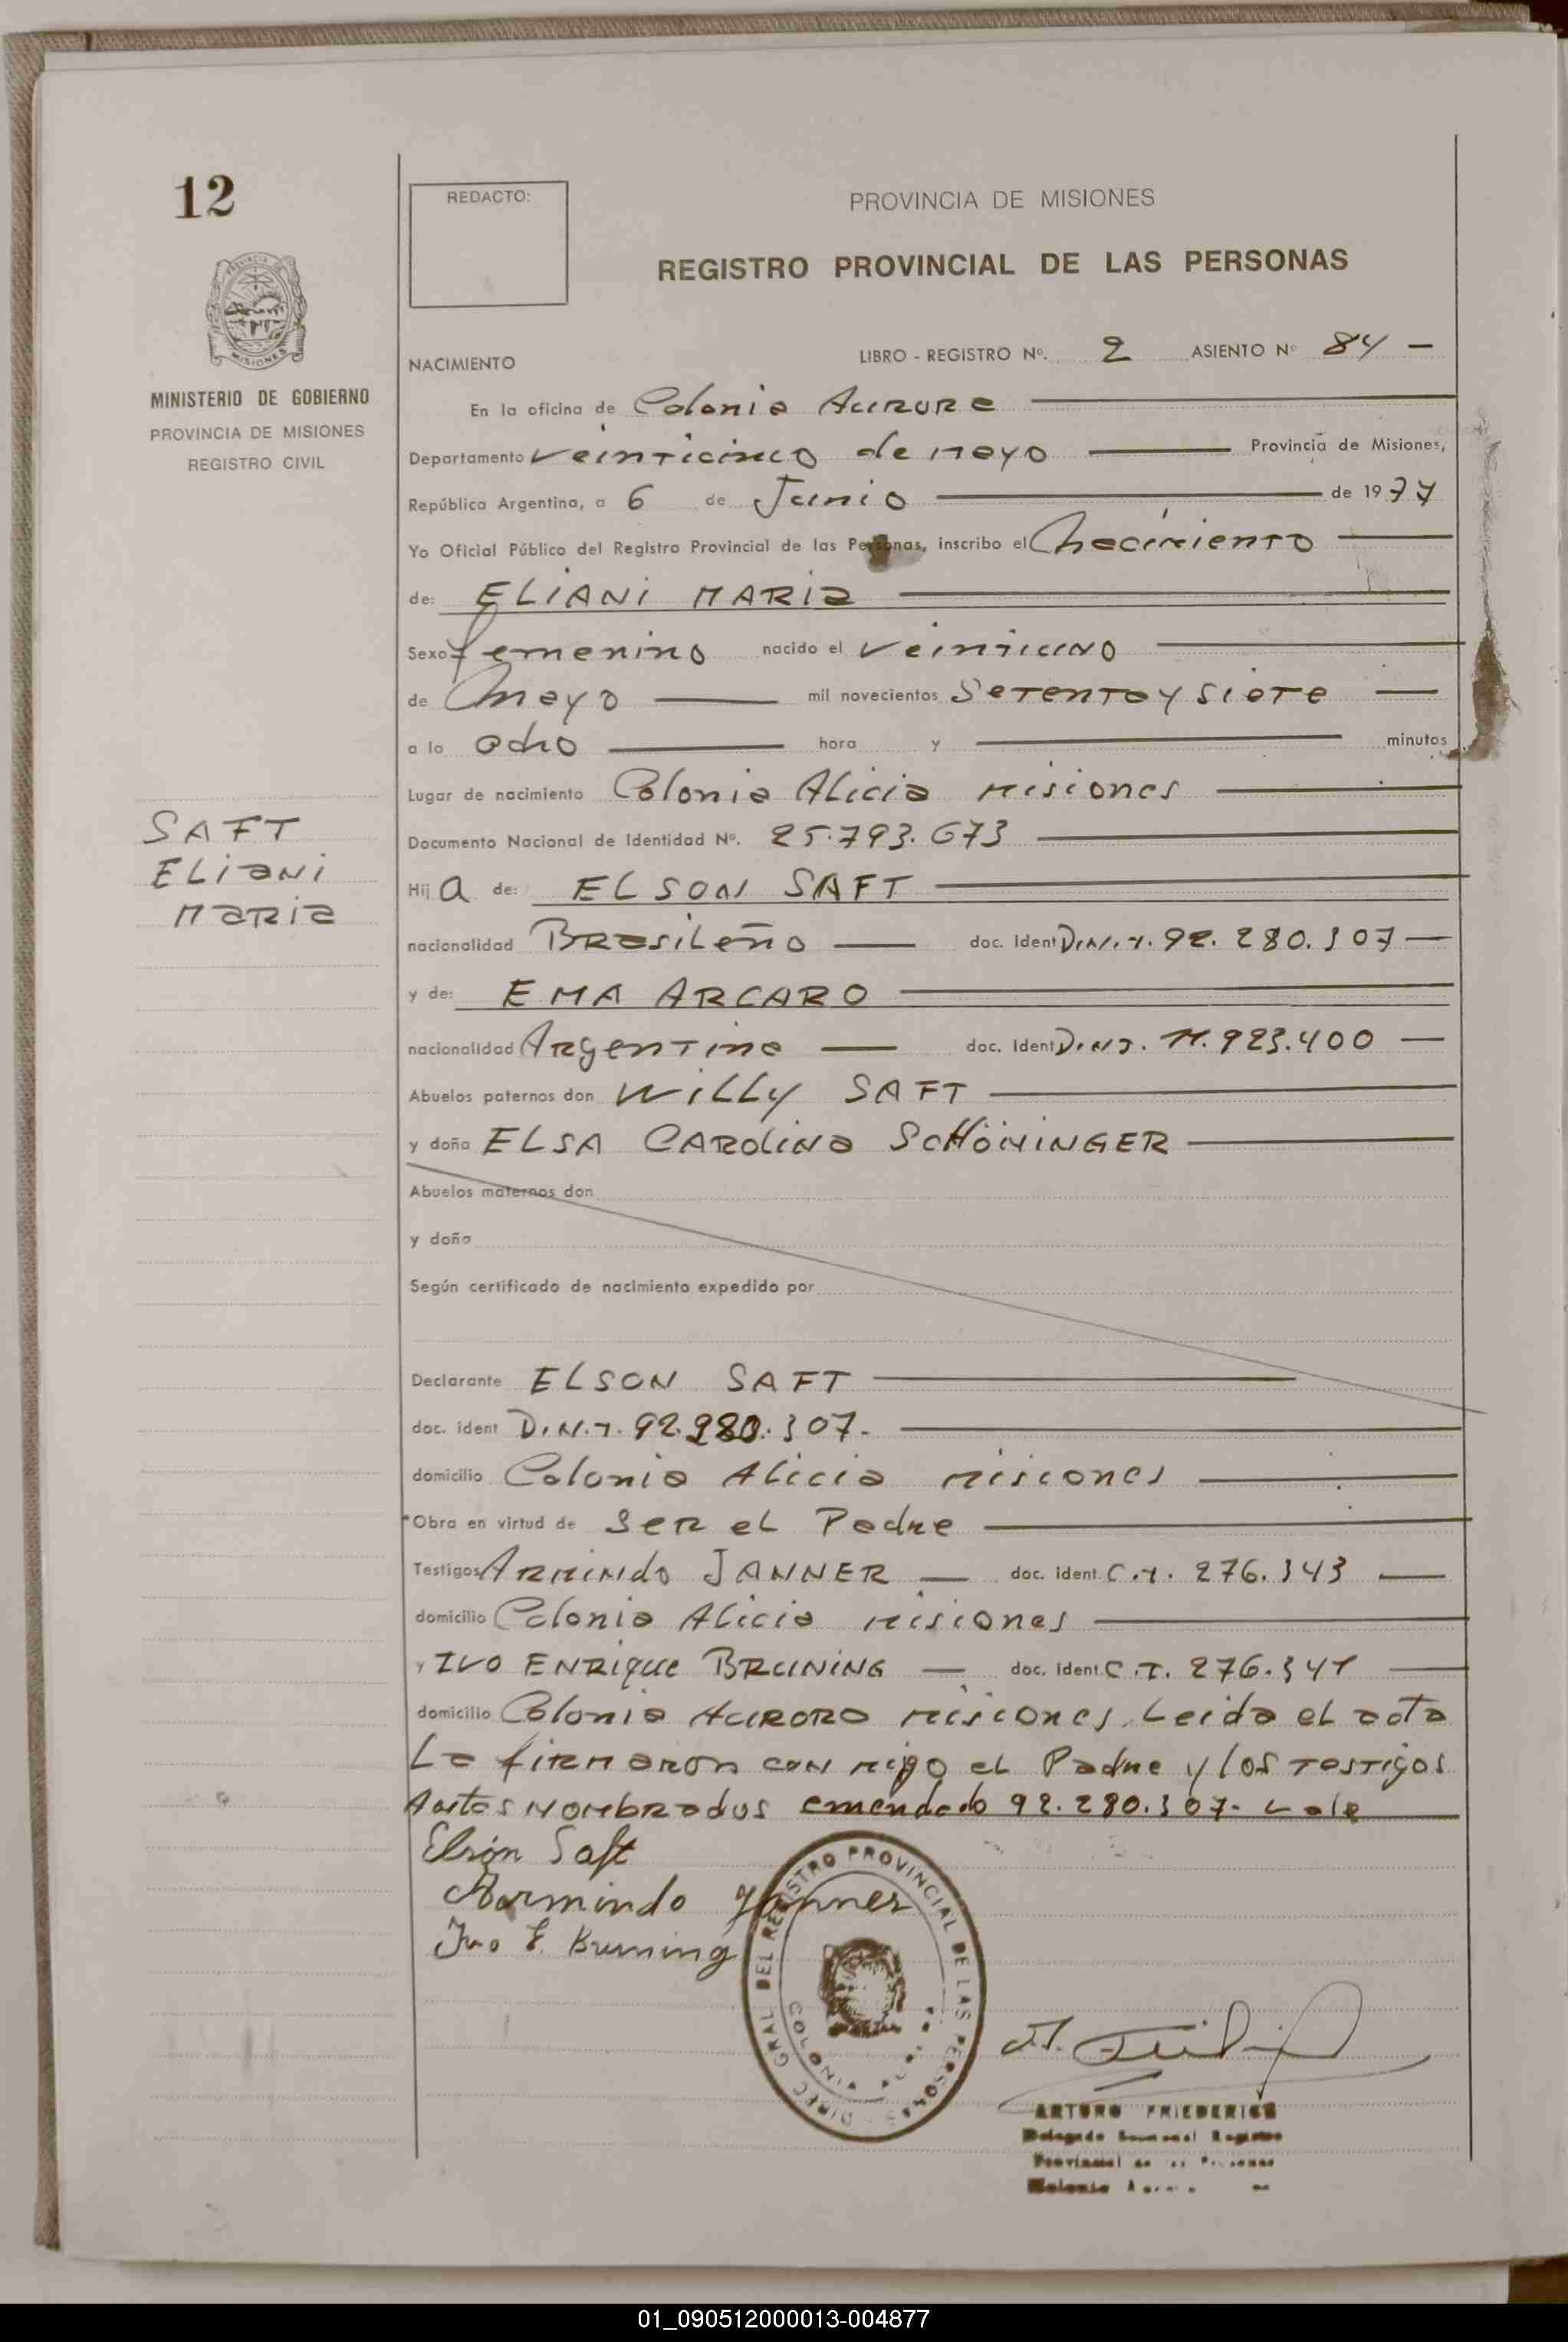 12
REDACTO:
PROVINCIA DE MISIONES
REGISTRO PROVINCIAL DE LAS PERSONAS
MISIONES
MINISTERIO DE GOBIERNO
PROVINCIA DE MISIONES
REGISTRO CIVIL
NACIMIENTO LIBRO - REGISTRO Nº. 2 ASIENTO Nº 84 —
En la oficina de Colonia Aurora
Departamento veinticinco de mayo Provincia de Misiones,
República Argentina, a 6 de Junio de 1977
Yo Oficial Público del Registro Provincial de las Personas, inscribo el Nacimiento
de: ELIANI MARIA
Sexo femenino nacido el veintiuno
de Mayo mil novecientos Setenta y Siete
a la ocho hora y minutos
Lugar de nacimiento Colonia Alicia Misiones
SAFT
ELIANI
MARIA
Documento Nacional de Identidad Nº. 25.793.673
Hij a de: ELSON SAFT
nacionalidad Brasileño doc. Ident D.N.I. 92.280.307
y de: EMA ARCARO
nacionalidad Argentina doc. Ident D.N.I. 11.923.400
Abuelos paternos don WILLY SAFT
y doña ELSA CAROLINA SCHÖNINGER
Abuelos maternos don
y doña
Según certificado de nacimiento expedido por
Declarante ELSON SAFT
doc. ident D.N.I. 92.280.307.
domicilio Colonia Alicia Misiones
Obra en virtud de Ser el Padre
Testigos ARMINDO JANNER doc. ident. C.I. 276.343
domicilio Colonia Alicia Misiones
y IVO ENRIQUE BRUNING doc. Ident. C.I. 276.341
domicilio Colonia Aurora Misiones. Leida el acta
La firmaron con migo el Padre y los Testigos
Antes Nombrados emendado 92.280.307- vale
Elson Saft
Armindo Janner
Ivo E. Bruning
DIREC. GRAL. DEL REGISTRO PROVINCIAL DE LAS PERSONAS
COLONIA AURORA
ARTURO FRIEDERICH
Delegado Seccional Registro
Provincial de las Personas
Colonia
01_090512000013-004877